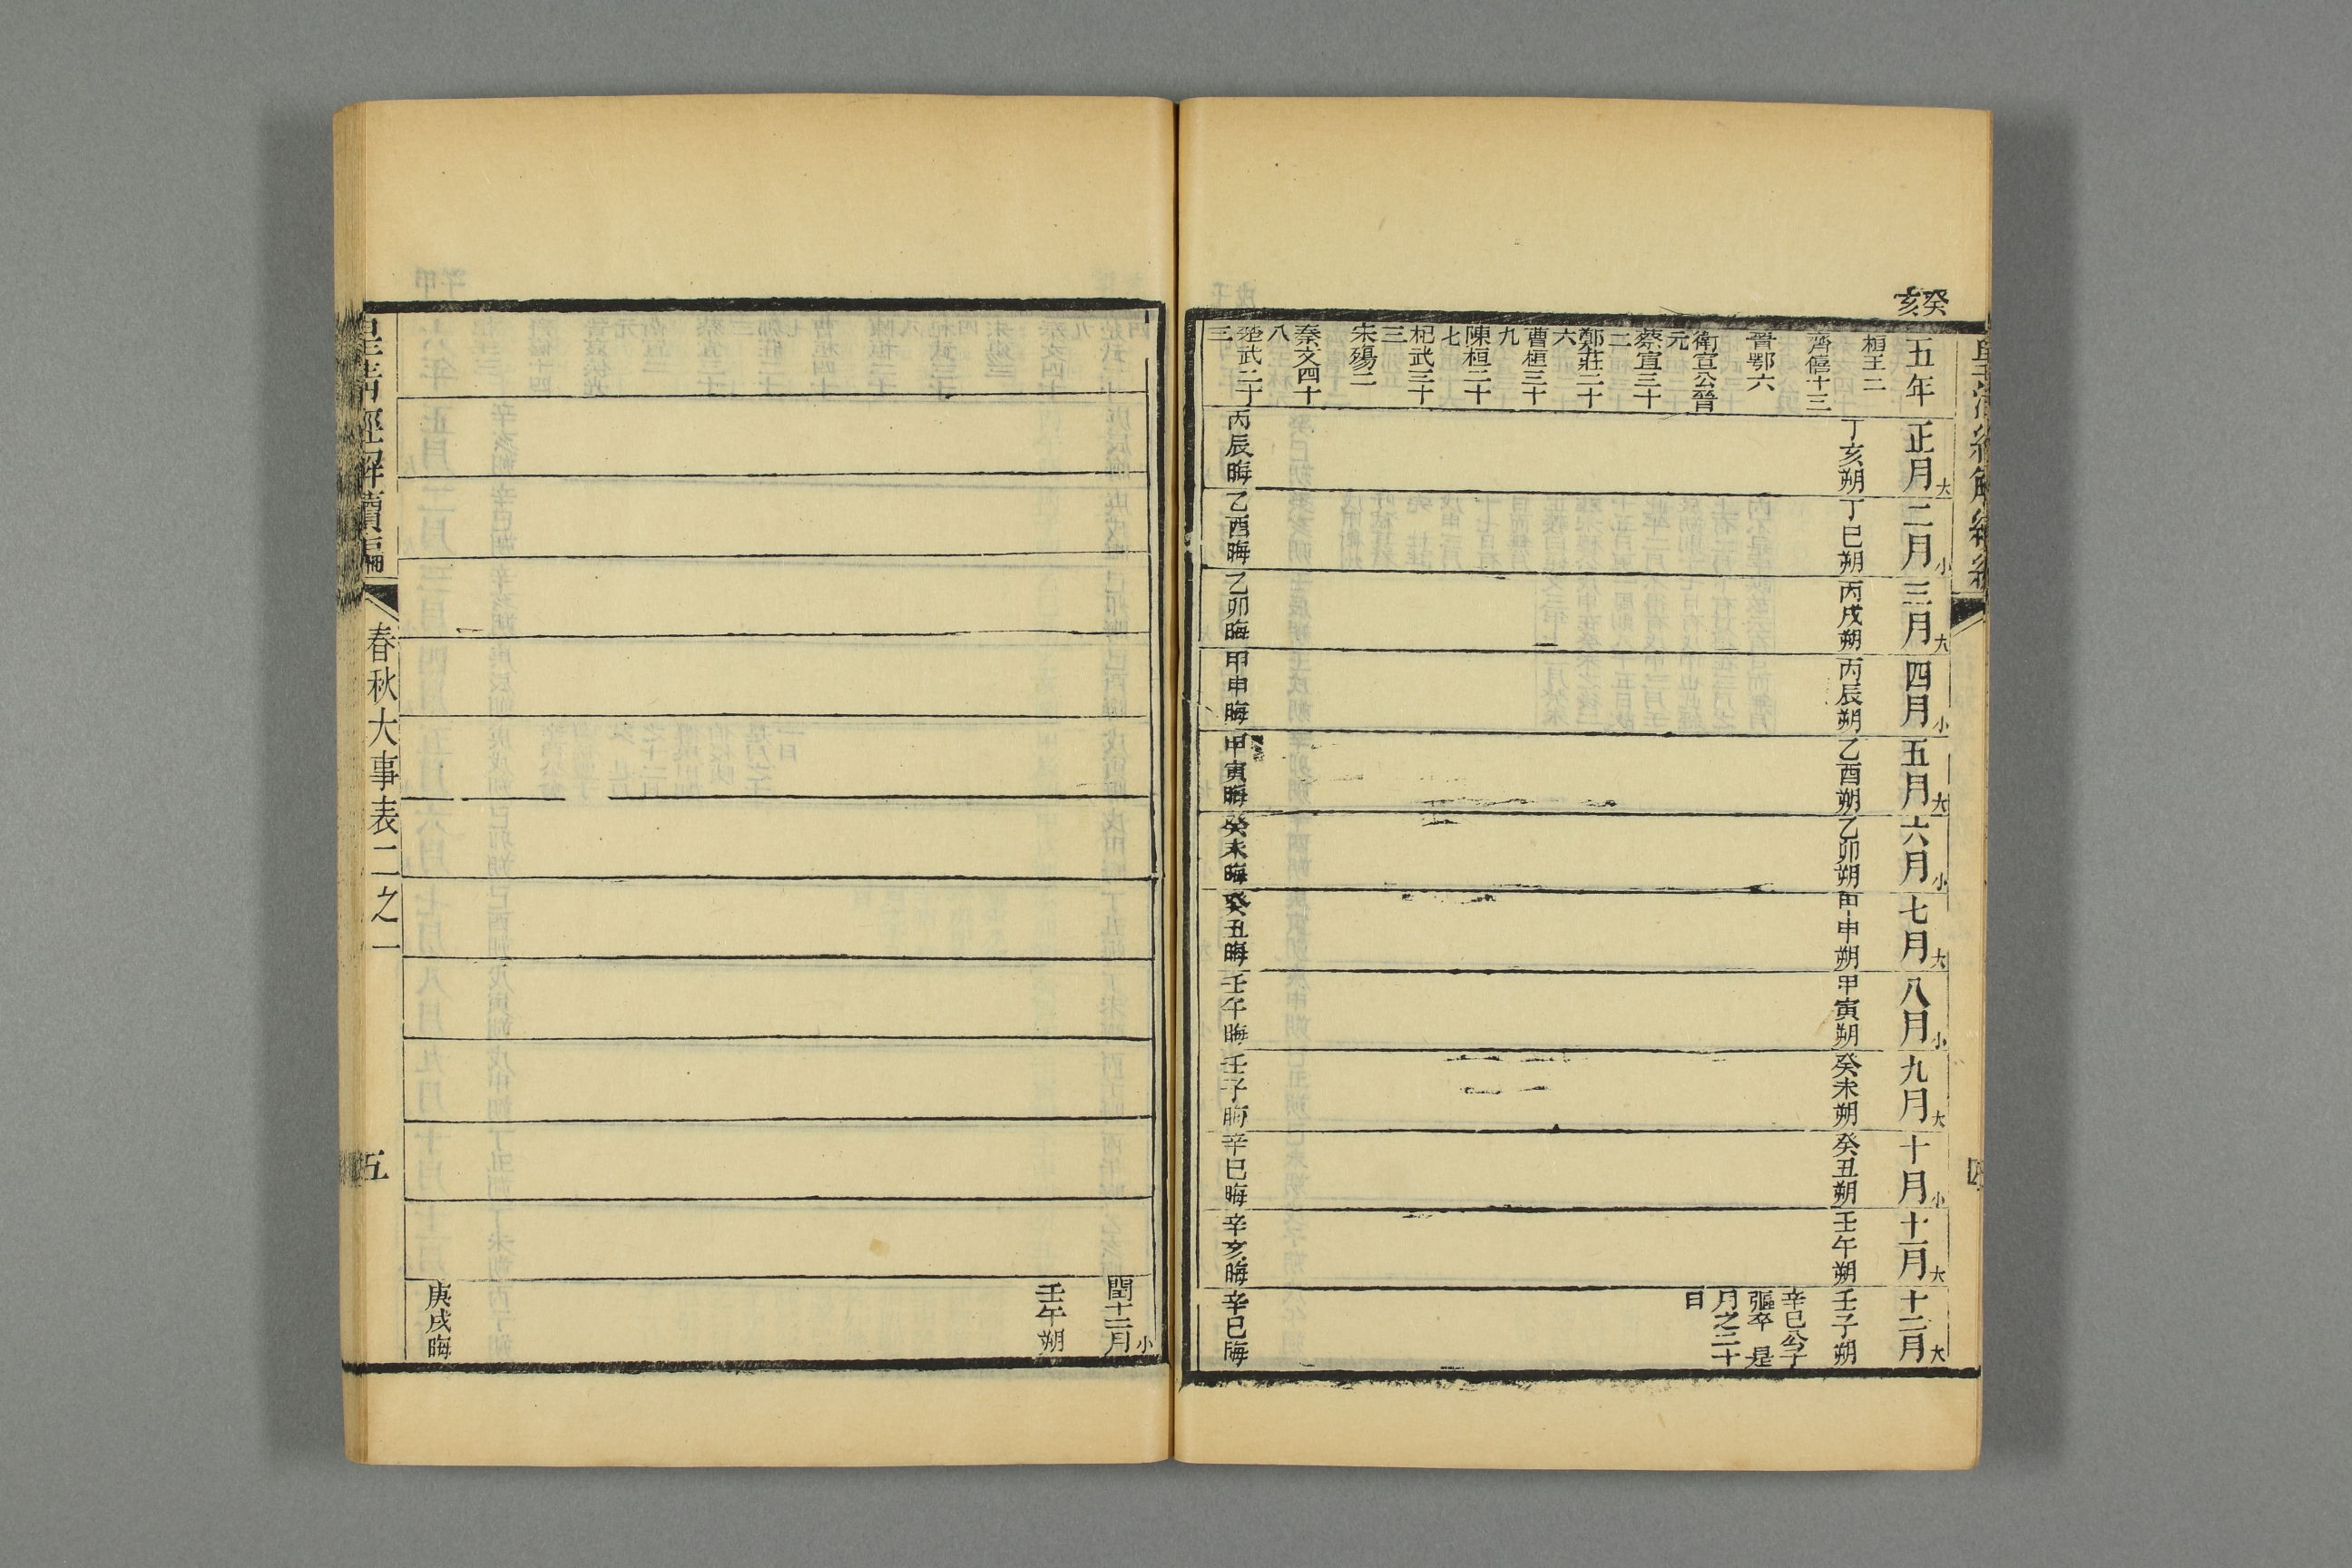 癸亥
五年
桓王二
齊僖十三
晉鄂六
衛宣公晉
元
蔡宣三十
二
鄭莊二十
六
曹桓三十
九
陳桓二十
七
杞武三十
三
宋殤二
秦文四十
八
楚武二十
三
正月大
丁亥朔
丙辰晦
二月小
丁巳朔
乙酉晦
三月大
丙戌朔
乙卯晦
四月小
丙辰朔
甲申晦
五月大
乙酉朔
甲寅晦
六月小
乙卯朔
癸未晦
七月大
甲申朔
癸丑晦
八月小
甲寅朔
壬午晦
九月大
癸未朔
壬子晦
十月小
癸丑朔
辛巳晦
十一月大
壬午朔
辛亥晦
十二月大
壬子朔
辛巳公子
彄卒 是
月之三十
日
辛巳晦
閏十二月小
壬午朔
庚戌晦
皇清經解續編
春秋大事表二之一
五